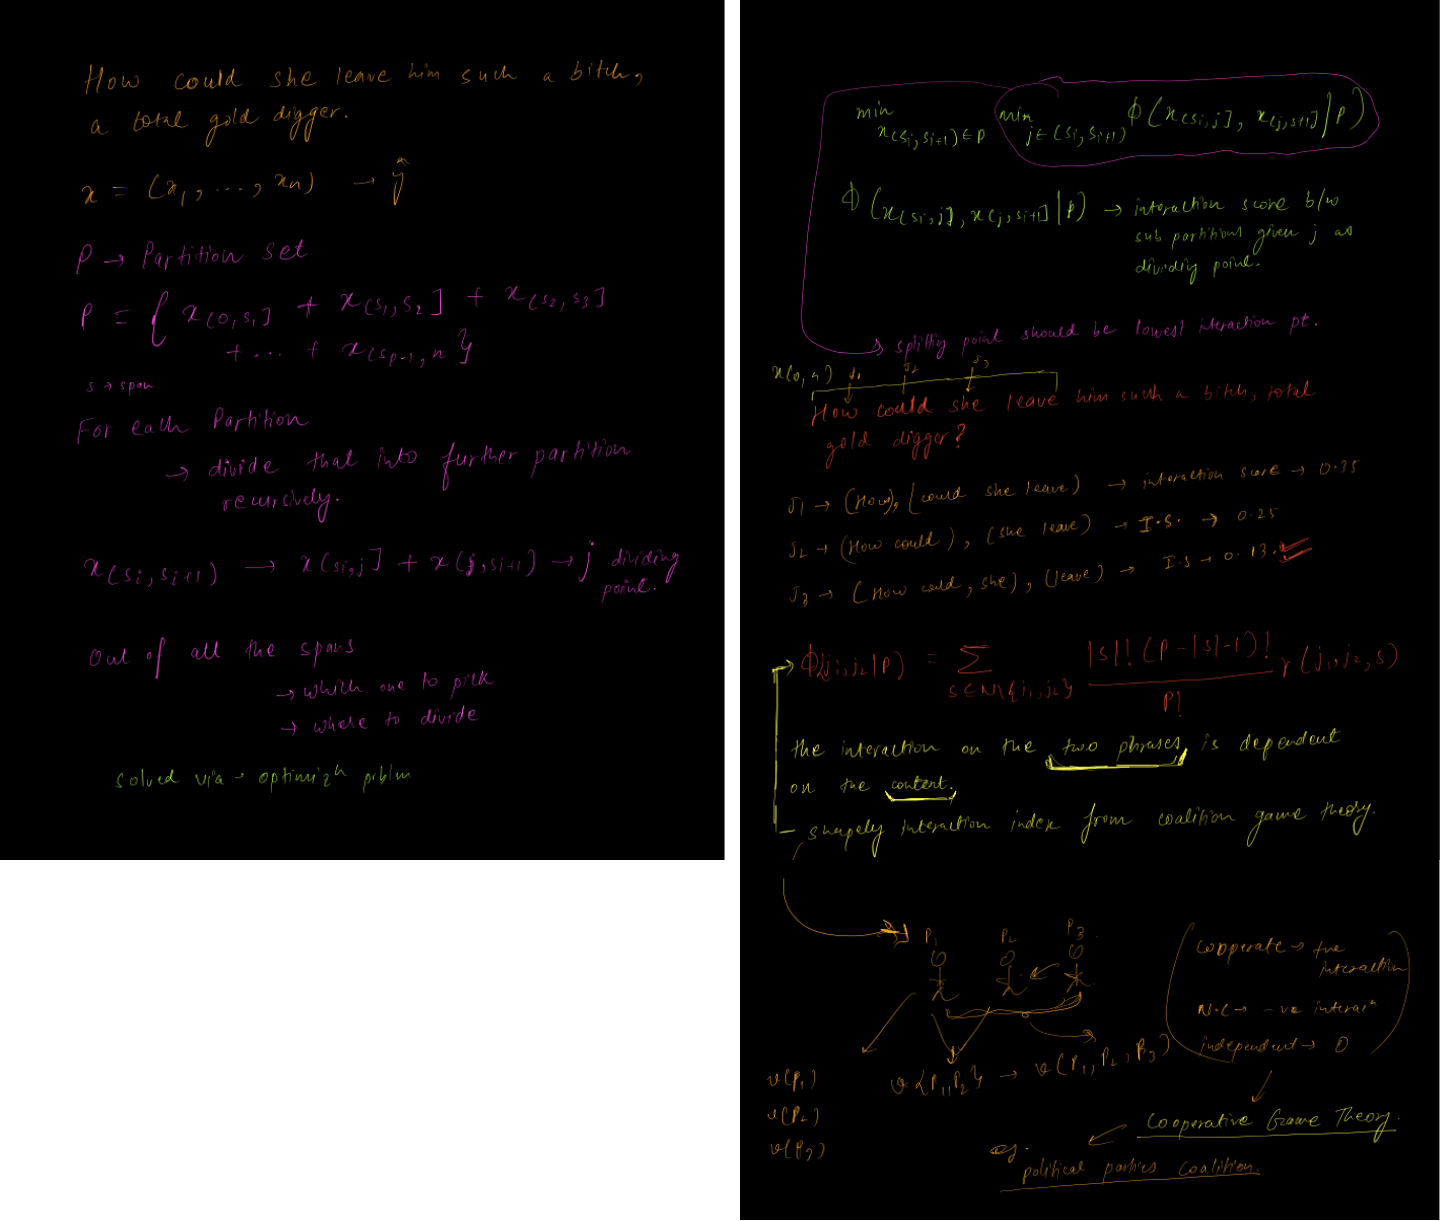 How could she leave him such a bitch,
a total gold digger.
x = (x₁, ..., xn) → ŷ
P → Partition set
P = { x(0,s₁] + x(s₁,s₂] + x(s₂,s₃]
+ ... + x(sp-1, n }
s → span
For each Partition
→ divide that into further partition
recursively.
x(si, si+1) → x(si,j] + x(j,si+1) → j dividing
point.
Out of all the spans
→ which one to pick
→ where to divide
solved via → optimizⁿ problm
min x(si,si+1)∈P min j∈(si,si+1) ϕ(x(si,j], x(j,s+1] | P)
ϕ(x(si,j], x(j,si+1] | P) → interaction score b/w
sub partitions given j as
dividing point.
→ splitting point should be lowest interaction pt.
x(0,n) J₁ J₂ J₃
How could she leave him such a bitch, total
gold digger?
J₁ → (How), (could she leave) → interaction score → 0.35
J₂ → (How could), (she leave) → I.S. → 0.25
J₃ → (How could, she), (leave) → I.S → 0.13.
ϕ(j₁,j₂|P) = Σ S⊆N\{j₁,j₂} |s|! (P-|s|-1)! / P! r(j₁,j₂,s)
the interaction on the two phrases, is dependent
on the content.
- shapely interaction index from coalition game theory.
P₁ P₂ P₃
cooperate → +ve
interaction
N.C → -ve interacⁿ
independent → 0
v(P₁) v{P₁,P₂} → v(P₁, P₂, P₃)
v(P₂)
v(P₃)
Cooperative Game Theory.
eg.
political parties coalition.